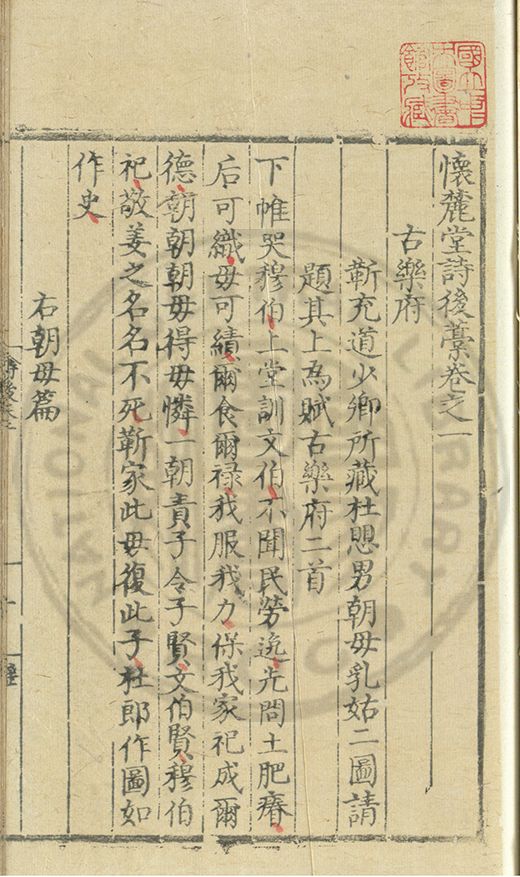 懷麓堂詩後藁卷之一
古樂府
靳充道少卿所藏杜堇男朝母乳姑二圖請
題其上為賦古樂府二首
下帷哭穆伯上堂訓文伯不聞民勞逸先問土肥瘠
后可織母可績爾食爾祿我服我力保我家祀成爾
德朝朝朝母得母憐一朝責子令子賢文伯賢穆伯
祀敬姜之名名不死靳家此母復此子杜郎作圖如
作史
右朝母篇